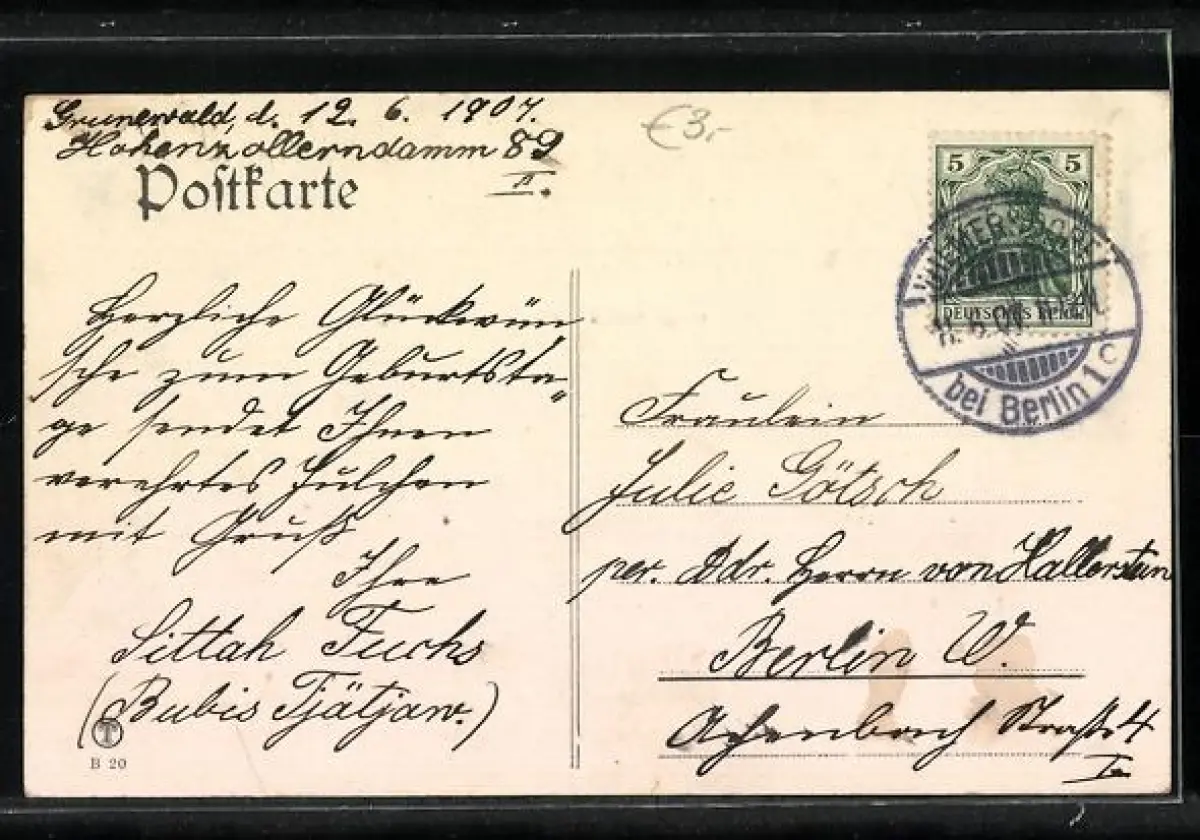 Grunewald, d. 12. 6. 1907.
Hohenzollerndamm 89
II.
Postkarte
€3,-
5 5
DEUTSCHES REICH
WILMERSDORF
11.6.07.
bei Berlin 1 c
Herzliche Glückwün
sche zum Geburtsta„
ge sendet Ihnen
verehrtes Julchen
mit Gruß
Ihre
Sittah Fuchs
(Bubis Tjätjaw.)
T
B 20
Fräulein
Julie Götsch
per. Adr. Herrn von Hallerstein
Berlin W.
Achenbach Straße 4